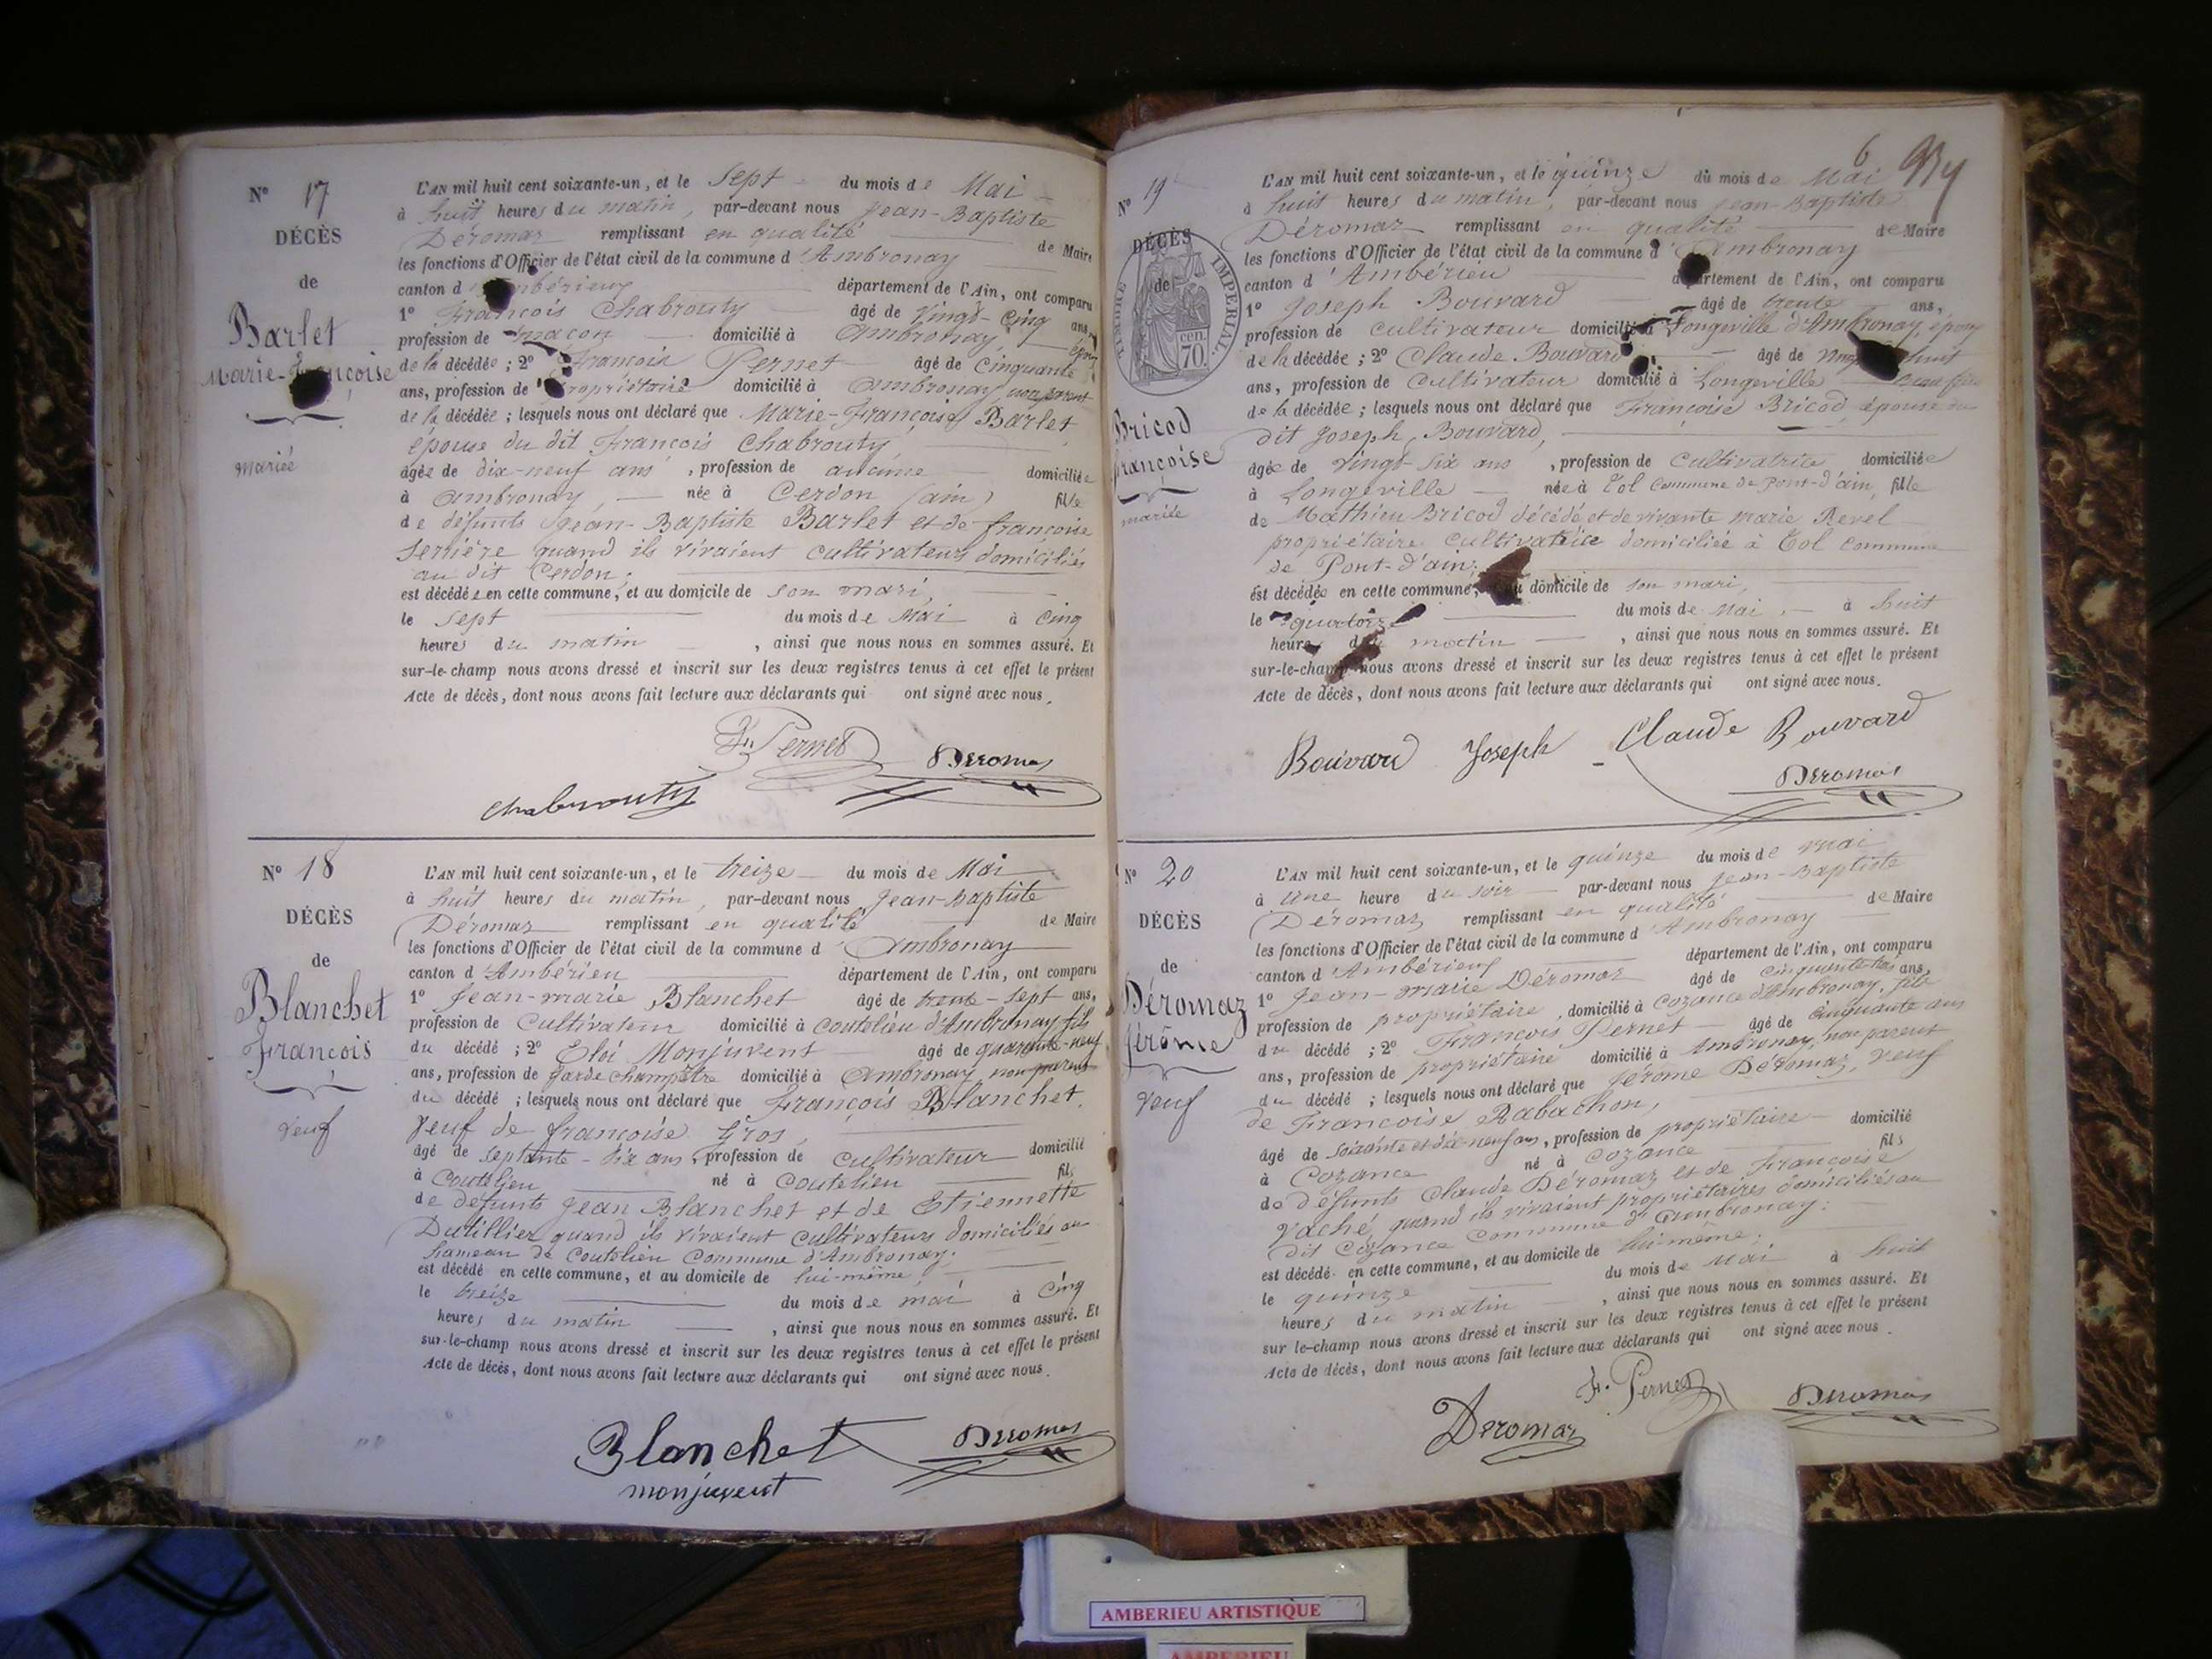 N° 17
DÉCÈS
de
Barlet
Marie-Françoise
mariée
L'AN mil huit cent soixante-un, et le Sept du mois de Mai
à huit heures du matin, par-devant nous Jean-Baptiste
Déromaz remplissant en qualité de Maire
les fonctions d'Officier de l'état civil de la commune d'Ambronay
canton d'Ambérieux département de l'Ain, ont comparu
1° François Chabrouty âgé de Vingt-cinq ans,
profession de maçon domicilié à Ambronay, époux
de la décédée ; 2° François Pernet âgé de cinquante
ans, profession de propriétaire domicilié à Ambronay, non parent
de la décédée ; lesquels nous ont déclaré que Marie-Françoise Barlet,
épouse du dit François Chabrouty
âgée de dix-neuf ans, profession de aucune domiciliée
à Ambronay, née à Cerdon (ain) fille
de défunts Jean-Baptiste Barlet et de françoise
Serrière quand ils vivaient cultivateurs domiciliés
au dit Cerdon;
est décédée en cette commune, et au domicile de son mari,
le Sept du mois de Mai à Cinq
heures du matin, ainsi que nous nous en sommes assuré. Et
sur-le-champ nous avons dressé et inscrit sur les deux registres tenus à cet effet le présent
Acte de décès, dont nous avons fait lecture aux déclarants qui ont signé avec nous.
Fs Pernet
Deromas
chabrouty
N° 18
DÉCÈS
de
Blanchet
François
Veuf
L'AN mil huit cent soixante-un, et le treize du mois de Mai
à huit heures du matin, par-devant nous Jean-Baptiste
Déromaz remplissant en qualité de Maire
les fonctions d'Officier de l'état civil de la commune d'Ambronay
canton d'Ambérieu département de l'Ain, ont comparu
1° Jean-marie Blanchet âgé de trente-sept ans,
profession de Cultivateur domicilié à Coutelieu d'Ambronay fils
du décédé ; 2° Eloi Monjuvent âgé de quarante-neuf
ans, profession de garde champêtre domicilié à Ambronay, non parent
du décédé ; lesquels nous ont déclaré que François Blanchet,
Veuf de françoise Gros,
âgé de septante-six ans, profession de cultivateur domicilié
à Coutelieu né à Coutelieu fils
de défunts Jean Blanchet et de Etiennette
Dutillier quand ils vivaient cultivateurs domiciliés au
hameau de Coutelieu Commune d'Ambronay;
est décédé en cette commune, et au domicile de lui-même,
le treize du mois de mai à Cinq
heures du matin, ainsi que nous nous en sommes assuré. Et
sur-le-champ nous avons dressé et inscrit sur les deux registres tenus à cet effet le présent
Acte de décès, dont nous avons fait lecture aux déclarants qui ont signé avec nous.
Blanchet
Deromas
monjuvent
6
N° 19
DÉCÈS
de
TIMBRE IMPÉRIAL
70 cen.
Bricod
françoise
mariée
L'AN mil huit cent soixante-un, et le quinze du mois de Mai
à huit heures du matin, par-devant nous Jean-Baptiste
Déromaz remplissant en qualité de Maire
les fonctions d'Officier de l'état civil de la commune d'Ambronay
canton d'Ambérieu département de l'Ain, ont comparu
1° Joseph Bouvard âgé de trente ans,
profession de cultivateur domicilié à Longeville d'Ambronay, époux
de la décédée ; 2° Claude Bouvard âgé de vingt-huit
ans, profession de Cultivateur domicilié à Longeville beau frère
de la décédée ; lesquels nous ont déclaré que Françoise Bricod, épouse du
dit Joseph Bouvard,
âgée de Vingt-six ans, profession de Cultivatrice domiciliée
à Longeville née à Tol Commune de Pont-d'ain, fille
de Mathieu Bricod décédé et de vivante marie Revel
propriétaire cultivatrice domiciliée à Tol Commune
de Pont-d'ain;
est décédée en cette commune, et au domicile de son mari,
le quatorze du mois de Mai, à huit
heures du matin, ainsi que nous nous en sommes assuré. Et
sur-le-champ nous avons dressé et inscrit sur les deux registres tenus à cet effet le présent
Acte de décès, dont nous avons fait lecture aux déclarants qui ont signé avec nous.
Bouvard Joseph Claude Bouvard
Deromas
N° 20
DÉCÈS
de
Déromaz
Jérôme
Veuf
L'AN mil huit cent soixante-un, et le quinze du mois de Mai
à Une heure du soir par-devant nous Jean-Baptiste
Déromaz remplissant en qualité de Maire
les fonctions d'Officier de l'état civil de la commune d'Ambronay
canton d'Ambérieux département de l'Ain, ont comparu
1° Jean-marie Déromaz âgé de cinquante trois ans,
profession de propriétaire, domicilié à Cozance d'Ambronay, fils
du décédé ; 2° François Pernet âgé de cinquante ans
ans, profession de propriétaire domicilié à Ambronay, non parent
du décédé ; lesquels nous ont déclaré que Jérôme Déromaz, veuf
de Françoise Rabachon,
âgé de soixante et dix-neuf ans, profession de propriétaire domicilié
à Cozance né à Cozance fils
de défunts Claude Déromaz et de Françoise
Vaché, quand ils vivaient propriétaires domiciliés au
dit Cozance Commune d'Ambronay;
est décédé en cette commune, et au domicile de lui-même;
le quinze du mois de Mai à huit
heures du matin, ainsi que nous nous en sommes assuré. Et
sur le-champ nous avons dressé et inscrit sur les deux registres tenus à cet effet le présent
Acte de décès, dont nous avons fait lecture aux déclarants qui ont signé avec nous.
F. Pernet
Deromaz
Deromas
AMBERIEU ARTISTIQUE
AMBERIEU